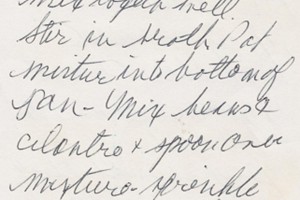 mix together well
Stir in broth Pat
mixture into bottom of
pan - Mix beans &
cilantro & spoon over
mixture - sprinkle